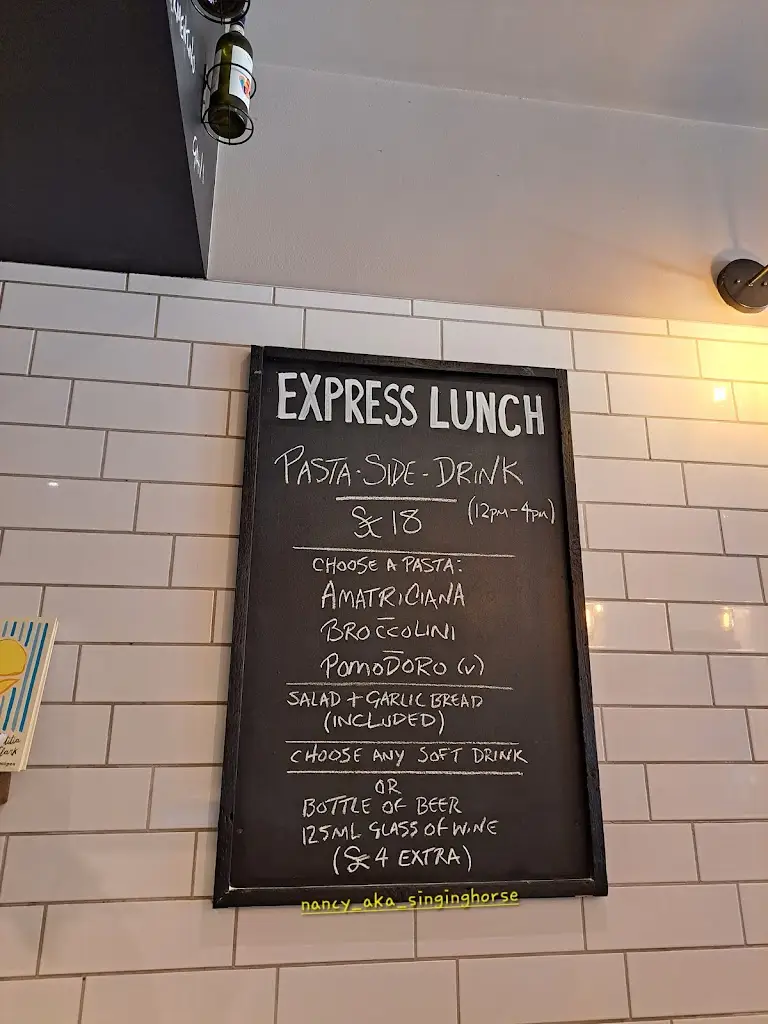 GAVI
EXPRESS LUNCH
PASTA-SIDE-DRINK
£18 (12pm-4pm)
CHOOSE A PASTA:
AMATRICIANA
BROCCOLINI
POMODORO (v)
SALAD + GARLIC BREAD
(INCLUDED)
CHOOSE ANY SOFT DRINK
OR
BOTTLE OF BEER
125ML GLASS OF WINE
(£4 EXTRA)
nancy_aka_singinghorse